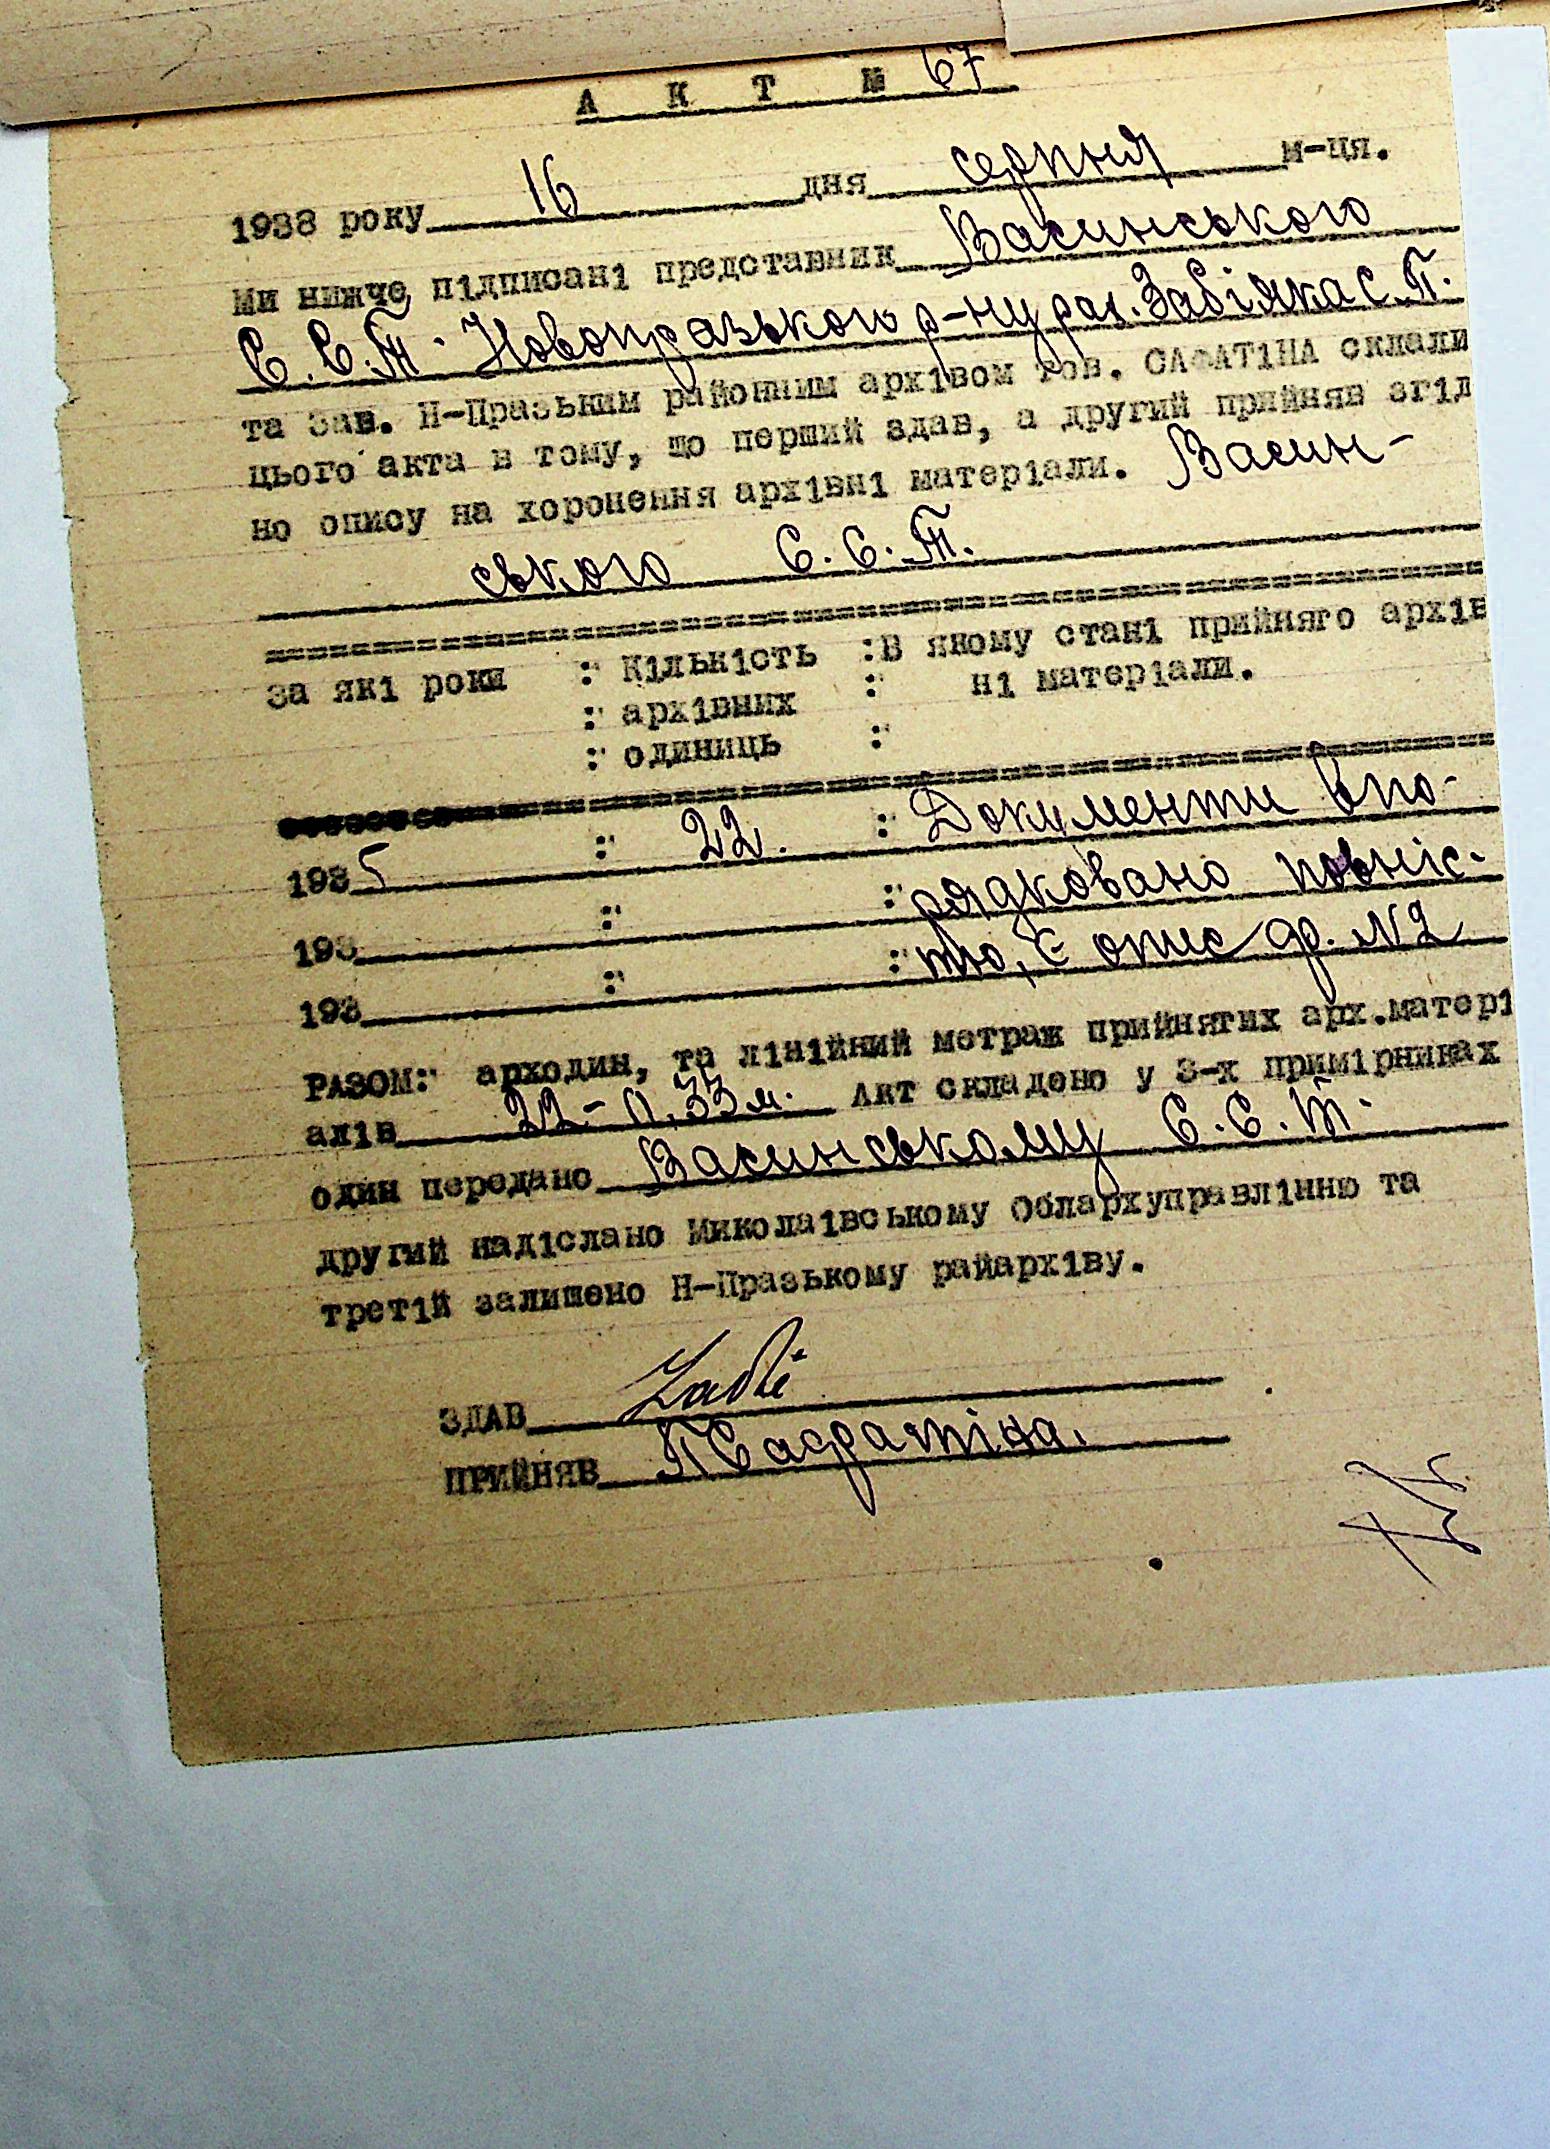 А К Т № 67
1938 року 16 дня серпня м-ця.
Ми нижче підписані представник Васинського
С.С.Т. Новопразького р-ну рах. Завіяка С.П.
та Зав. Н-Празьким районним архівом тов. САФАТІНА склали
цього акта в тому, що перший здав, а другий прийняв згід
но опису на хоронення архівні матеріали. Васин-
ського С.С.Т.
За які роки : Кількість : В якому стані прийняго архів
: архівних : ні матеріали.
: одиниць :
1935 : 22. : Документи впо-
193 : : рядковано повніс-
193 : : тю, є опис ф. №2
РАЗОМ: арходин, та лінійний метраж прийнятих арх.матері
алів 22-0,33 м. Акт складено у 3-х примірниках
один передано Васинському С.С.Т.
другий надіслано Миколаівському Облархуправлінню та
третій залишено Н-Празькому райархіву.
ЗДАВ Заві
ПРИЙНЯВ П Сафатіна.